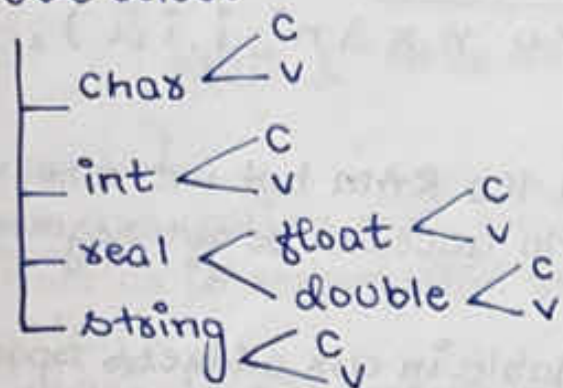 char < C
V
int < C
V
real < float < C
V
double < C
V
string < C
V